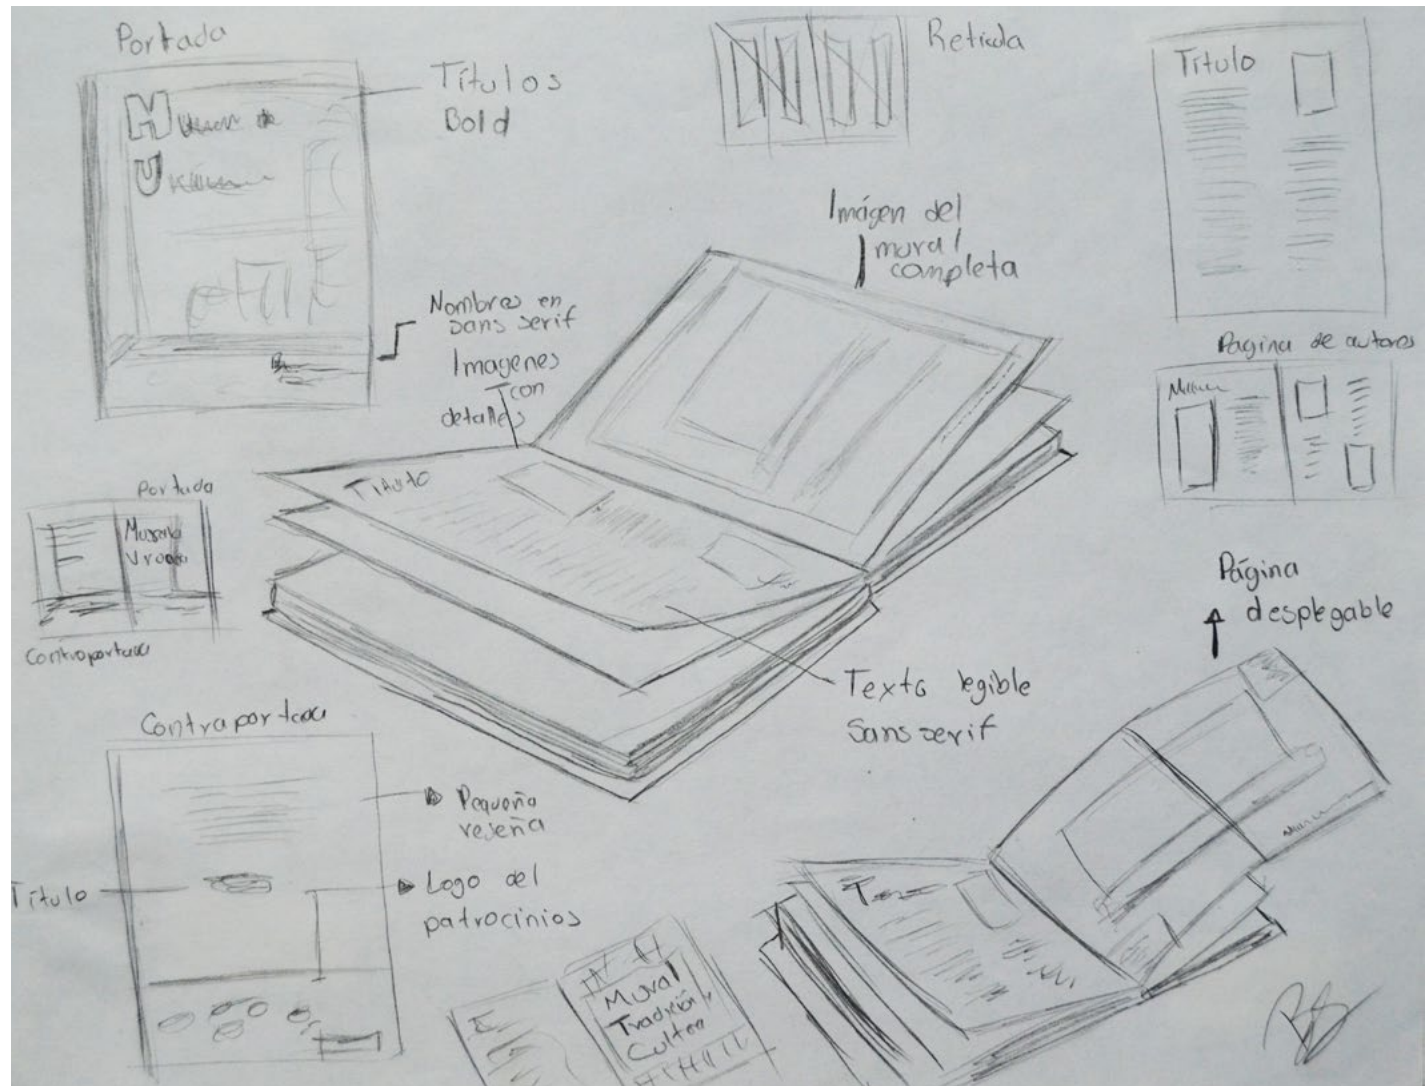 Portada
Títulos
Bold
Retícula
Título
Imágen del
mural
completa
Nombres en
sans serif
Imagenes
con
detalles
Pagina de autores
Título
Portada
Contraportada
Página
desplegable
Texto legible
Sans serif
Contraportada
Pequeña
reseña
Título
Logo del
patrocinios
Mural
Tradición y
Cultura